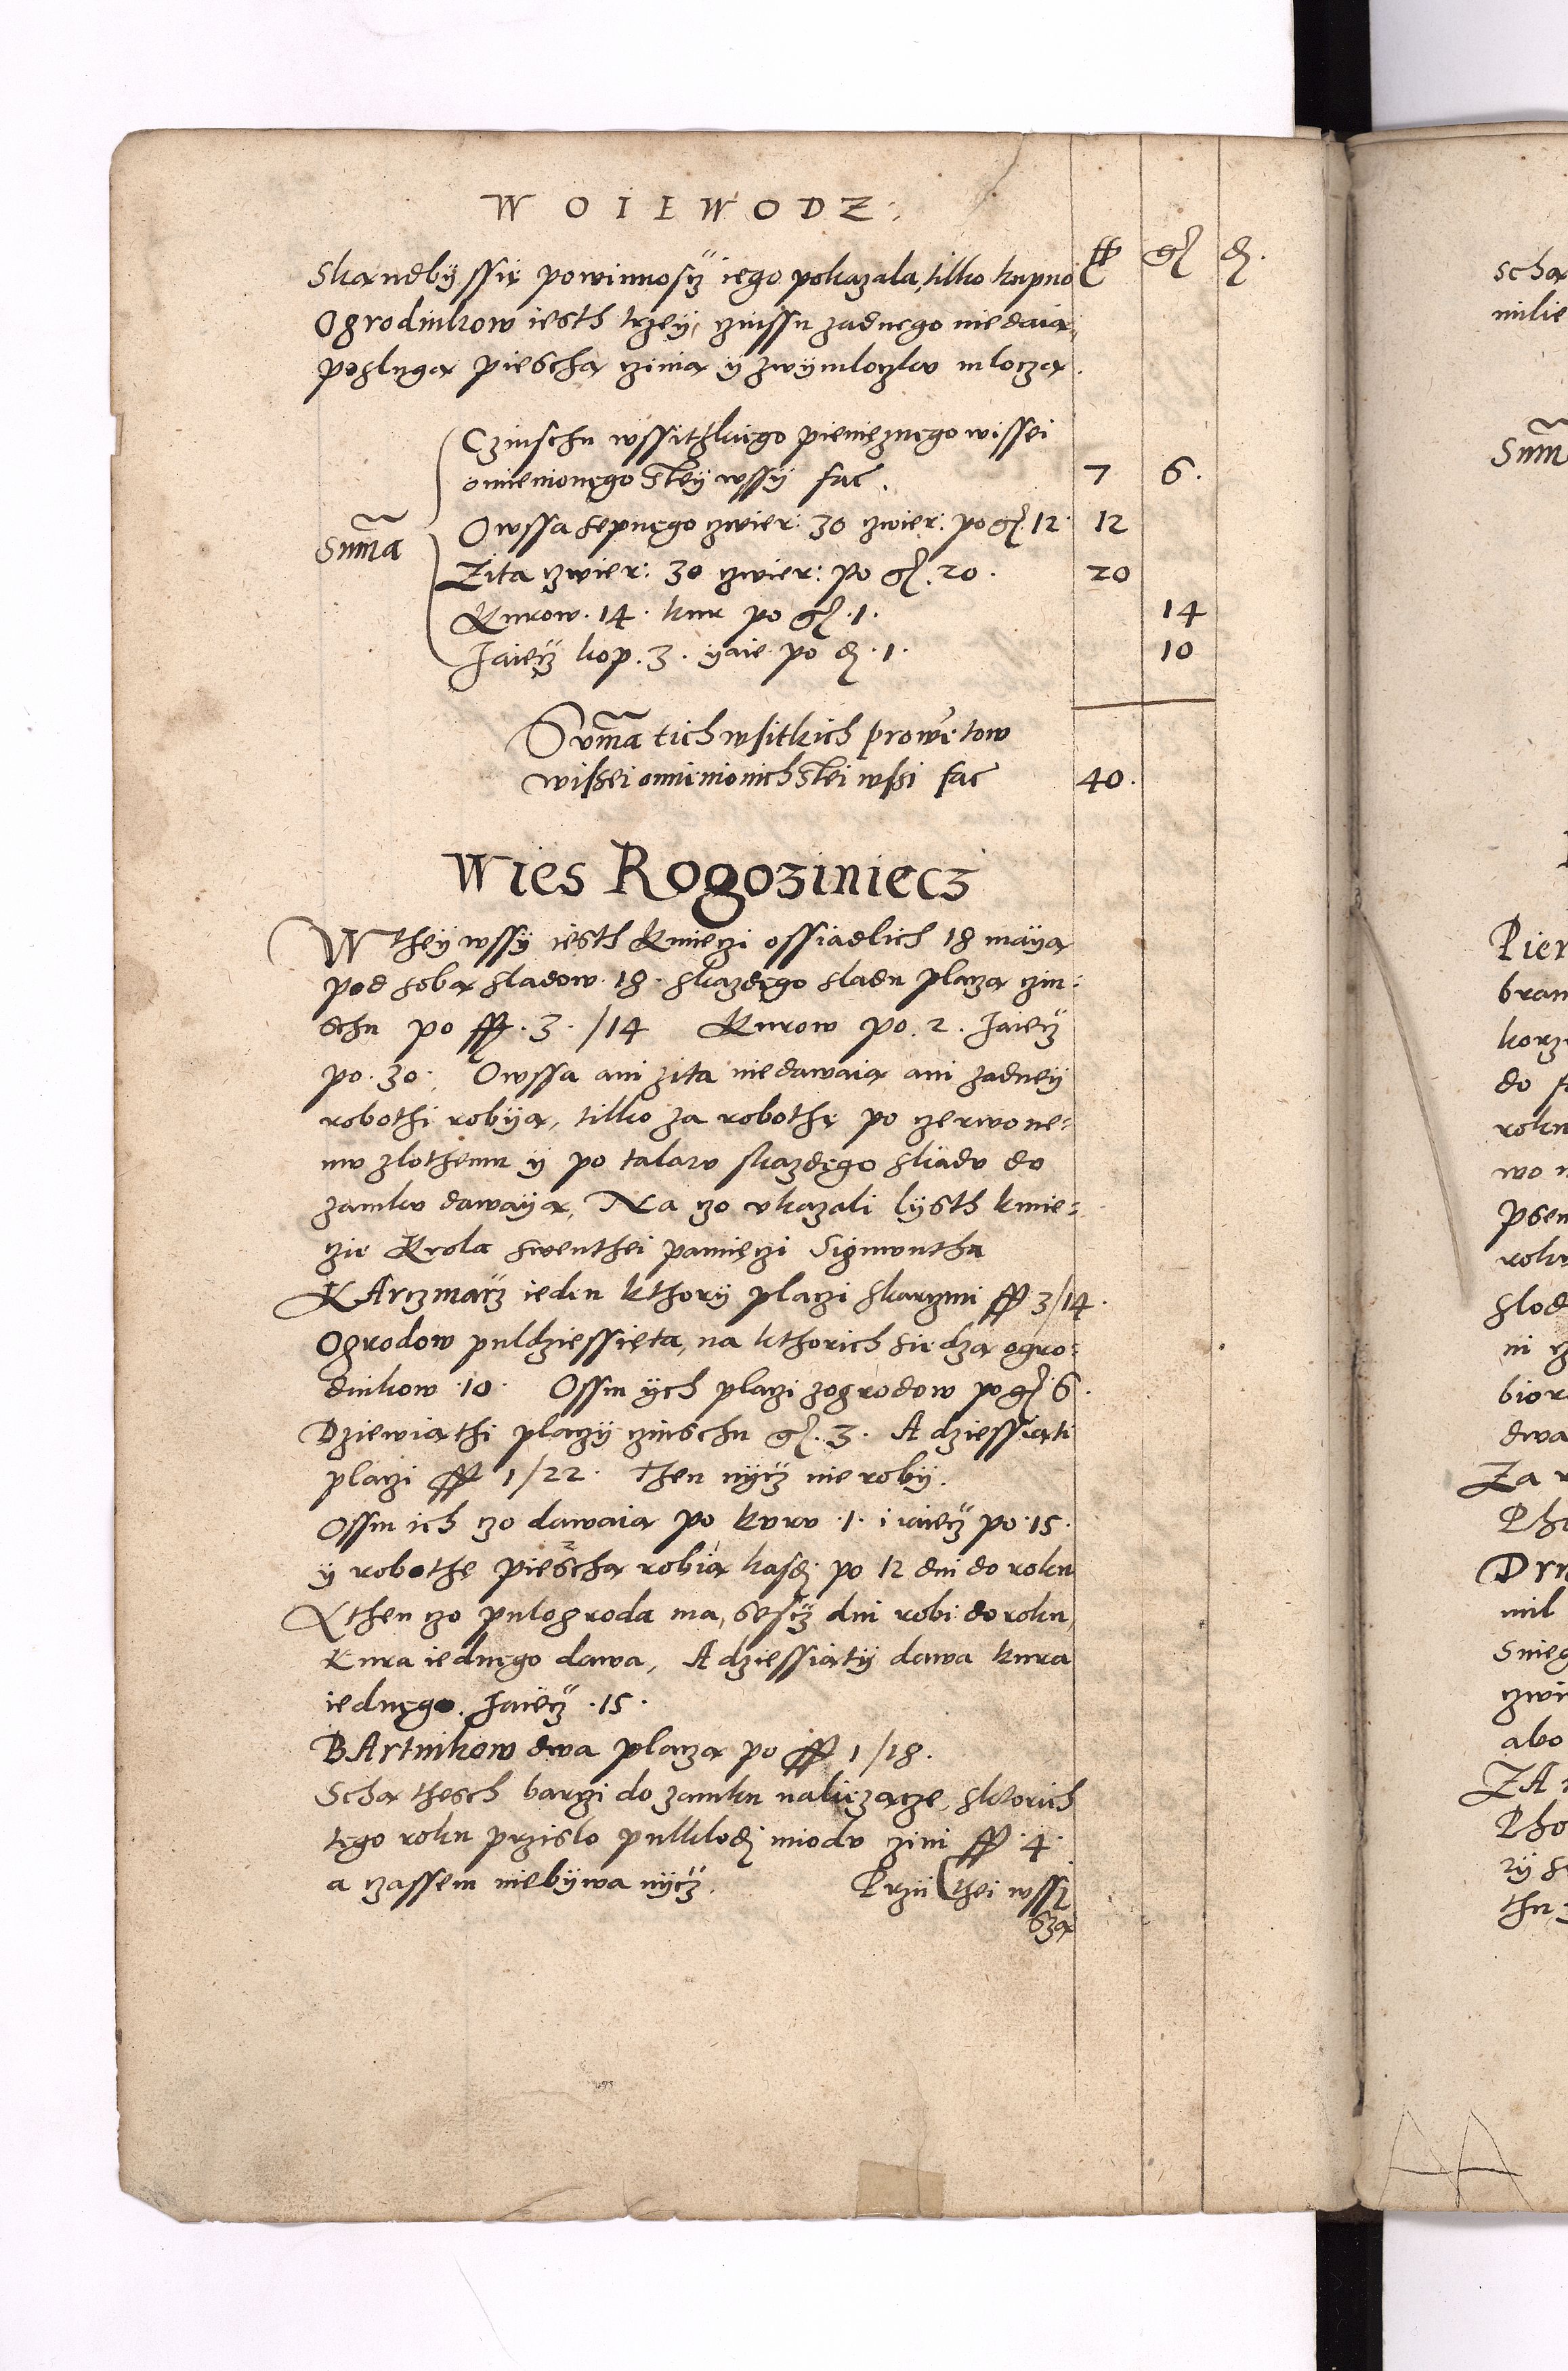 WOIEWODZ:
skandby ssię powinnoscz iego pokazala, tilko kupno ff gr d.
Ogrodnikow iesth trzey, czinssu zadnego nie daia,
posluga piescha czinia y zwymloczku mlocza.
Czinschu wssithkiego pieniężnego wissei
omienionęgo stey wssy fac. 7 6.
Owssa sepnęgo czwier: 30 czwier: po gr. 12. 12
Summa
Zita czwier: 30 czwier: po gr. 20. 20
Kurow. 14. kur po gr. 1. 14
Jaiecz kop. 3. yaie po d. 1. 10
Summa tich wsitkich prowentow
wissei omienionich stei wssi fac 40.
Wies Rogoziniecz
W they wssy iesth Kmieczi ossiadlich 18 maya
pod soba sladow. 18. skazdęgo sladu placza czin:
schu po ff. 3. /14 Kurow po. 2. Jaiecz
po. 30. Owssa ani zita nie dawaia ani zadney
robothi robya, tilko za robothę po czerwone:
mv zlothemu y po talarv skazdęgo sladv do
zamkv dawaya, Na czo vkazali lysth kmie:
czie Krola swenthei pamięczi Sigmvntha
KArczmacz ieden kthory placzi skarczmi ff 3/14.
Ogrodow puldziessięta, na kthorich siedza ogro:
dnikow. 10. Ossm ych placzi zogrodow po gr. 6.
Dziewiathi placzy czinschu gr. 3. A dziessiąti
placzi ff 1/22. Then nycz nie roby.
Ossm ich czo dawaia po kvrv. 1. i iaiecz po. 15.
y robothę piescha robia kasdi po 12 dni do roku
Kthen czo pulogroda ma, sescz dni robi do roku,
Kura iednęgo dawa, A dziessiaty dawa kura
iednęgo. Jaiecz. 15.
BArtnikow dwa placza po ff 1/18.
Scha thesch barczi do zamku nalięzacze, sktorich
tęgo roku przislo pulklodi miodv czini ff. 4.
a czassem niebywa nycz. Przii thei wssi
sza